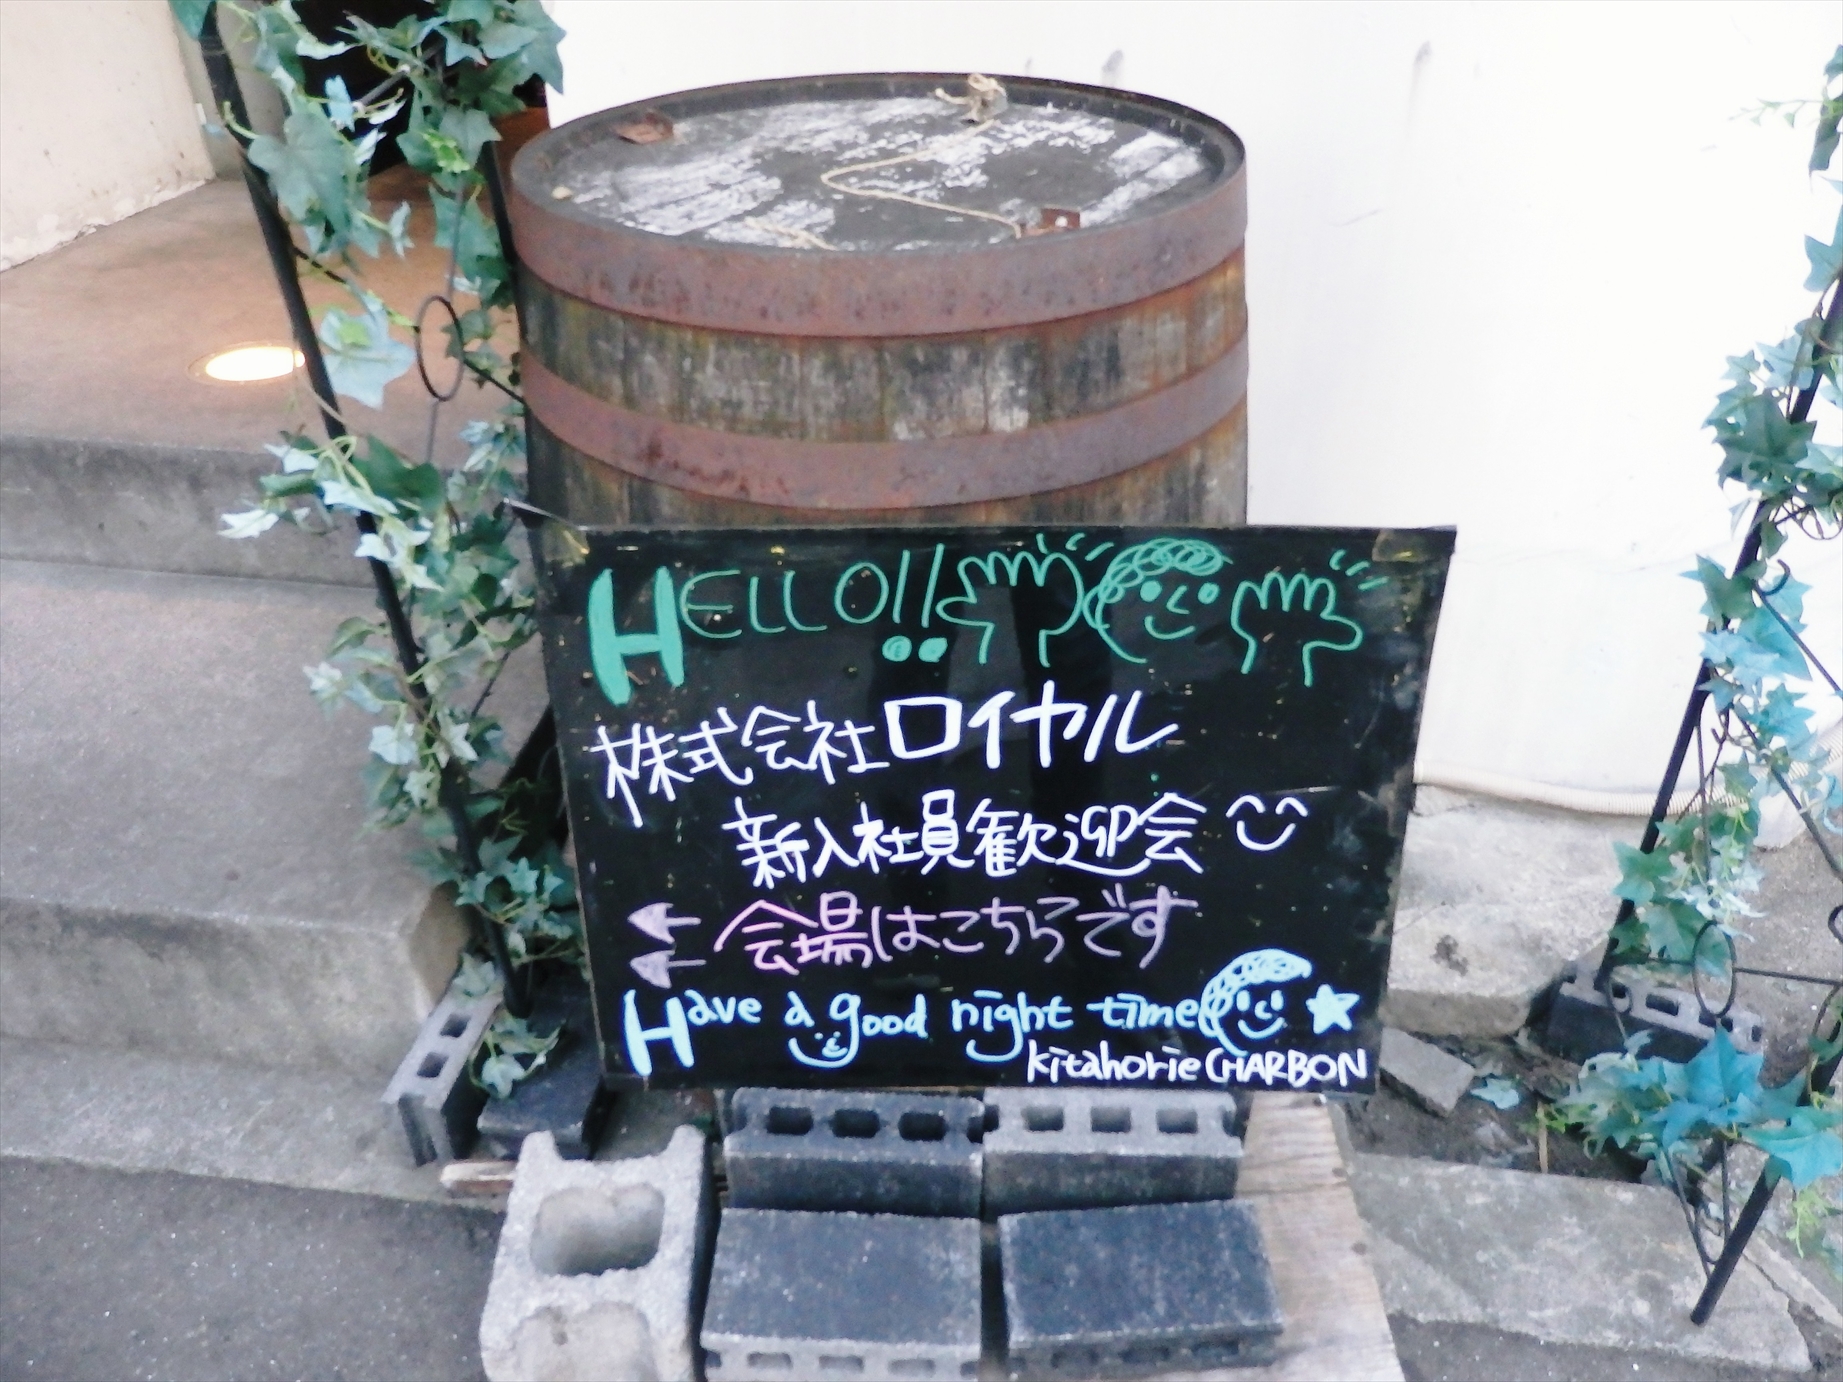 HELLO!!
株式会社ロイヤル
新入社員歓迎会
会場はこちらです
Have a good night time
kitahorie CHARBON